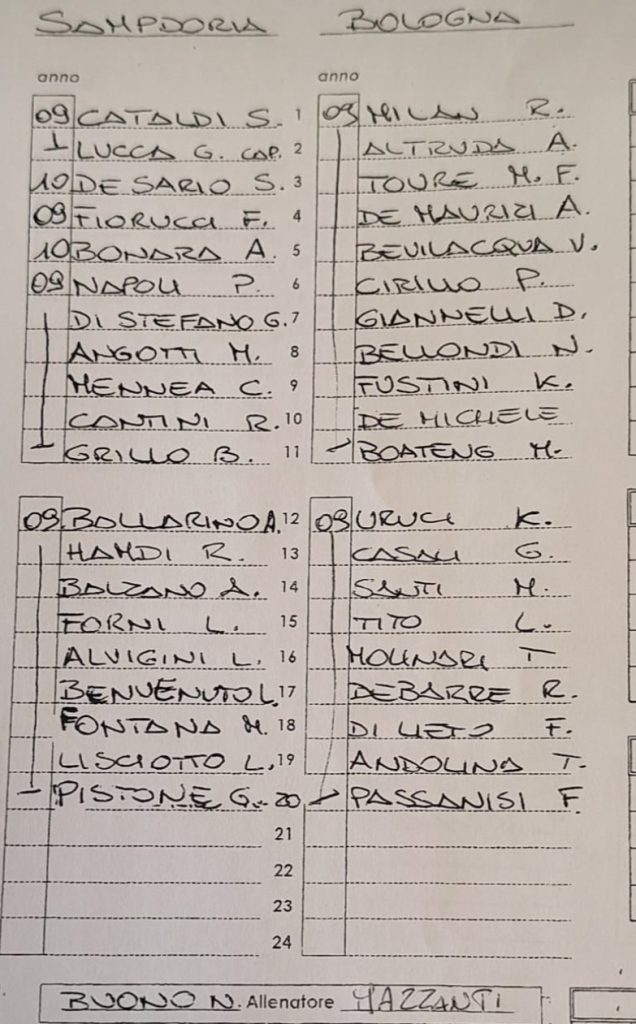 SAMPDORIA BOLOGNA
anno anno
09 CATALDI S. 1 09 MILAN R.
LUCCA G. CAP. 2 ALTRUDA A.
10 DE SARIO S. 3 TOURE M. F.
09 FIORUCCI F. 4 DE MAURIZI A.
10 BONARA A. 5 BEVILACQUA V.
09 NAPOLI P. 6 CIRILLO P.
DI STEFANO G. 7 GIANNELLI D.
ANGOTTI M. 8 BELLONDI N.
MENNEA C. 9 FUSTINI K.
CONTINI R. 10 DE MICHELE
GRILLO B. 11 BOATENG M.
09 BALLARINO A. 12 09 URUCI K.
HAMDI R. 13 CASALI G.
BALZANO A. 14 SANTI M.
FORNI L. 15 TITO L.
ALVIGINI L. 16 MOLINARI T
BENVENUTO L. 17 DEBARRE R.
FONTANA M. 18 DI LIETO F.
LISCIOTTO L. 19 ANDOLINA T.
PISTONE G. 20 PASSANISI F.
21
22
23
24
BUONO N. Allenatore MAZZANTI